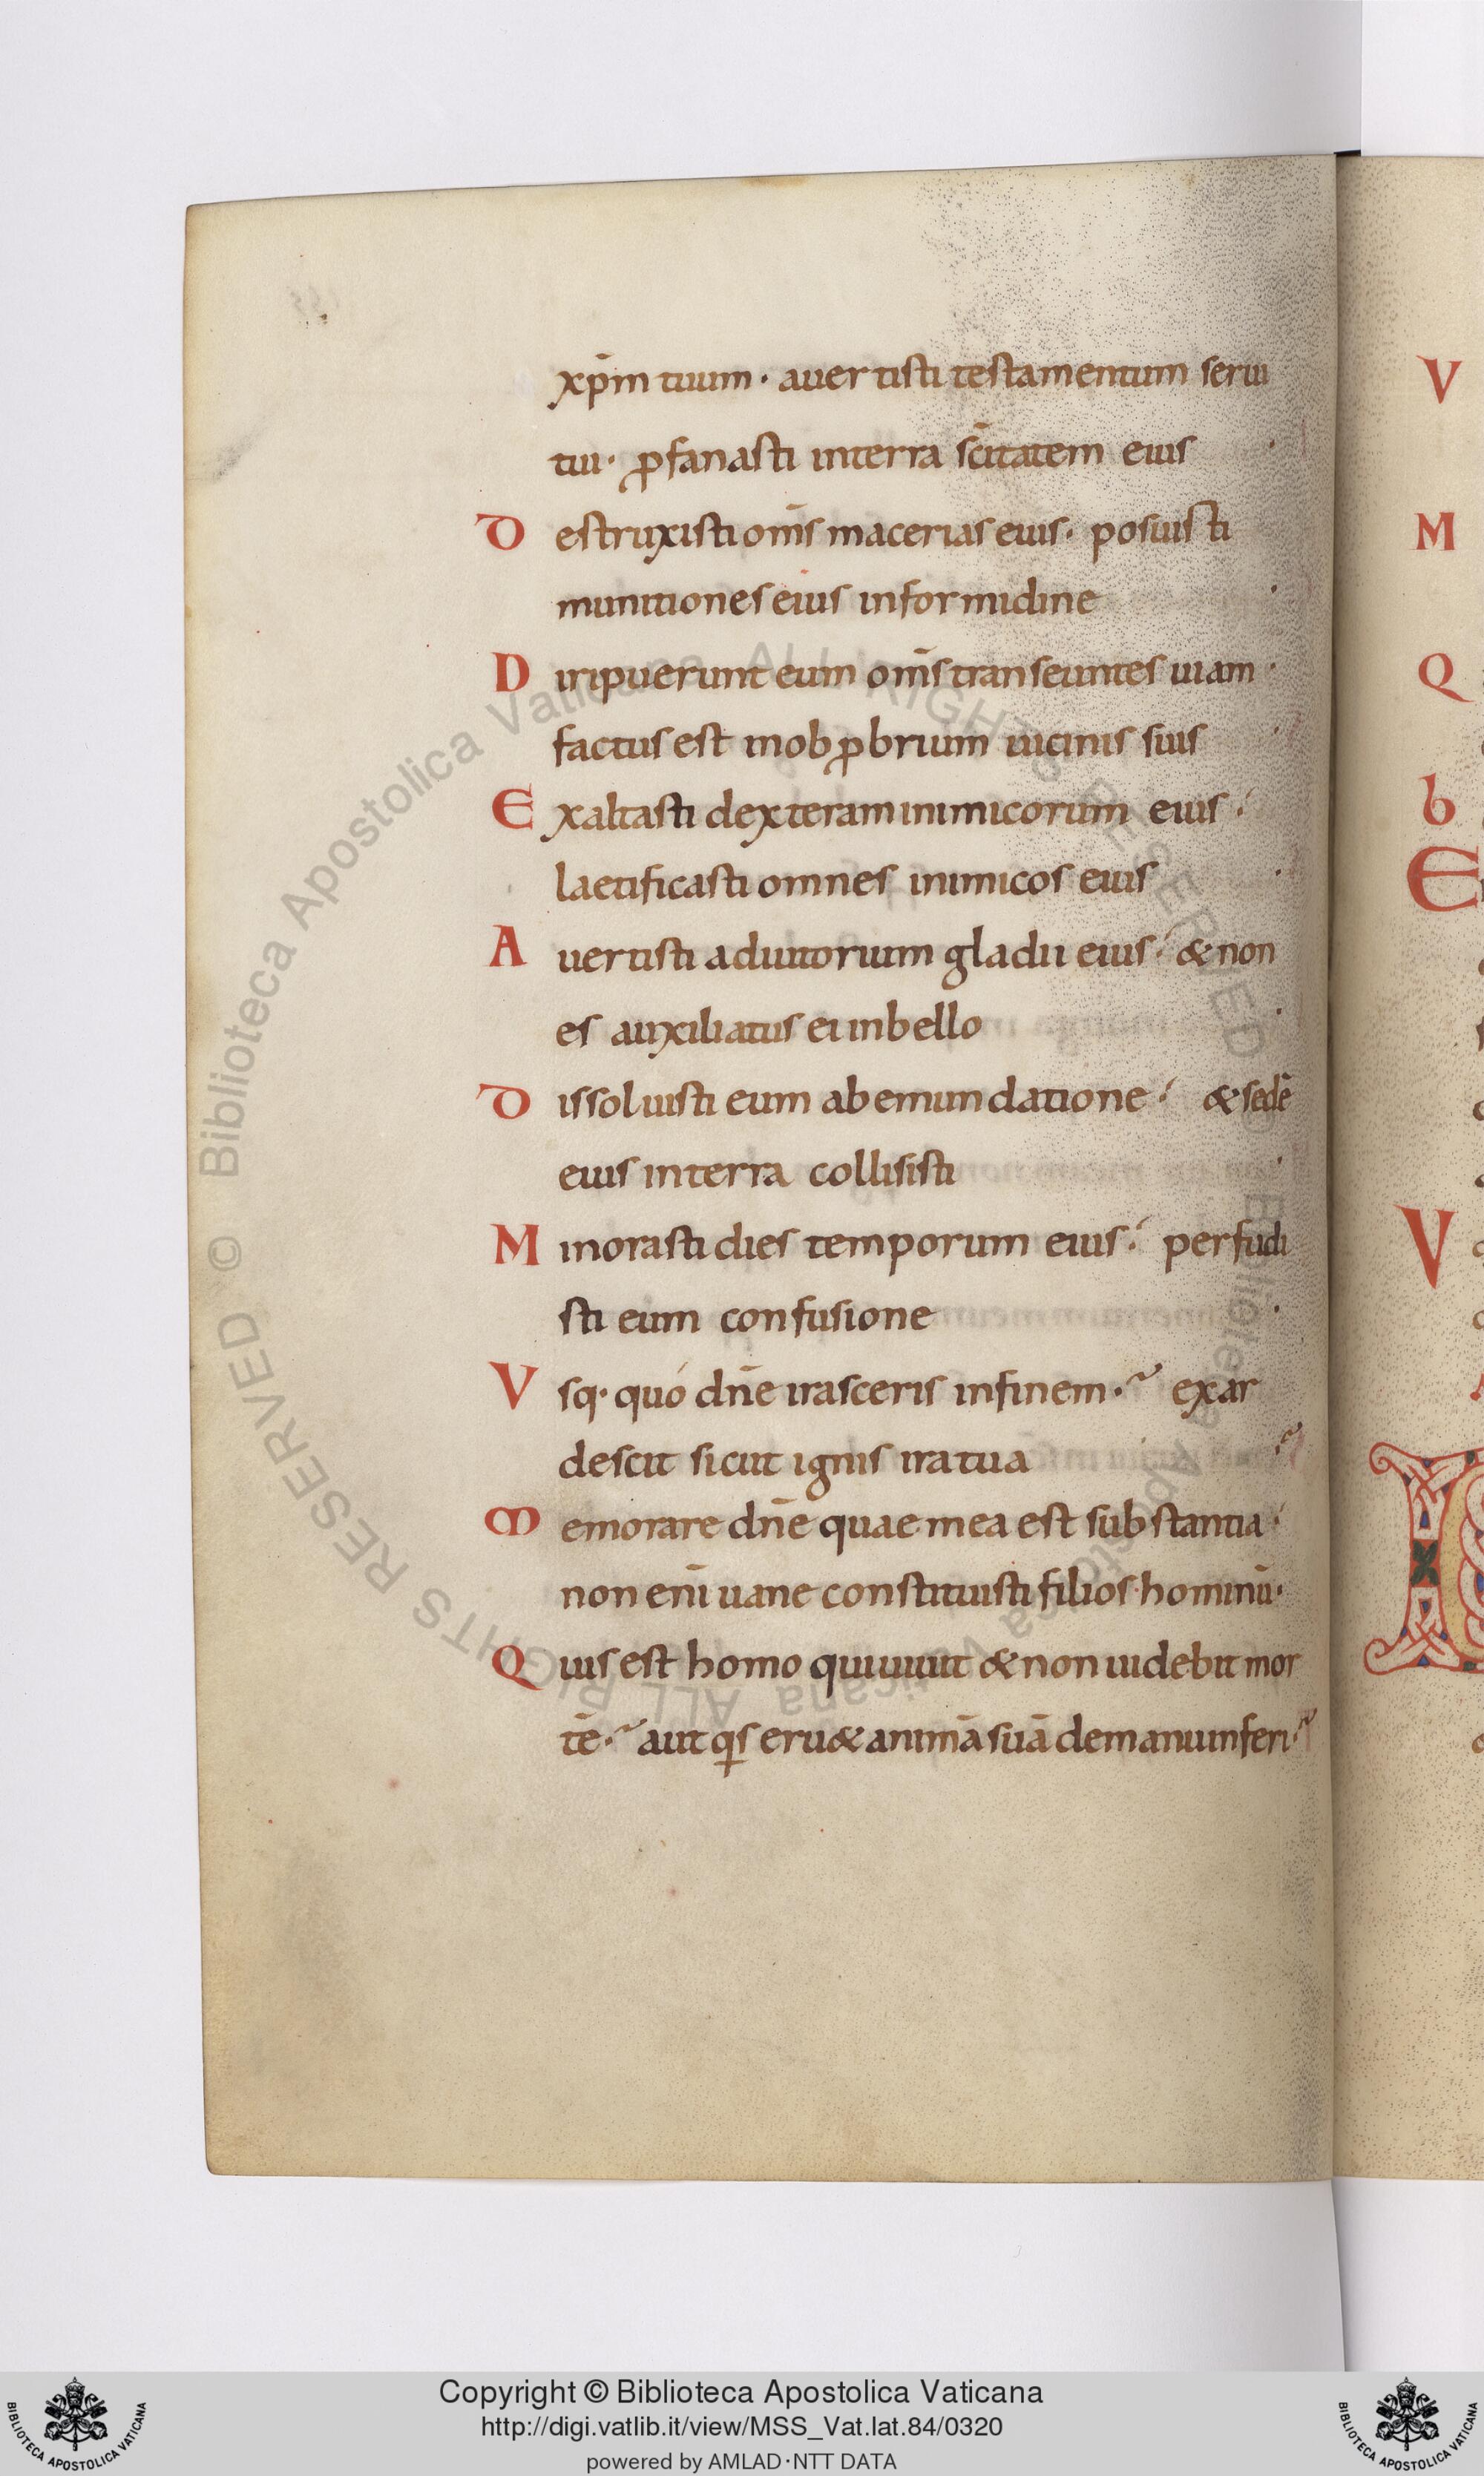 xp̄m tuum · auertisti testamentum serui
tui · ꝓfanasti interra sc̄itatem eius ·
Destruxisti om̄s macerias eius · posuisti
munitiones eius informidine ·
Diripuerunt eum om̄s transeuntes uiam ·
factus est inobꝓbrium uicinis suis ·
Exaltasti dexteram inimicorum eius ·
laetificasti omnes inimicos eius ·
Auertisti adiutorium gladii eius · & non
es auxiliatus ei inbello ·
Dissoluisti eum abemundatione · & sedē
eius interra collisisti ·
Minorasti dies temporum eius · perfudi
sti eum confusione ·
Vsq· quó dn̄e irasceris infinem · exar
descit sicut ignis ira tua ·
Memorare dn̄e quae mea est substantia ·
non eni̅ uane constituisti filios hominū ·
Quis est homo qui uiuit & non uidebit mor
tē · aut qͥs eru& animā suā demanu inferi ·
V
M
Q
b
E
V
© Biblioteca Apostolica Vaticana ALL RIGHTS RESERVED © Biblioteca Apostolica Vaticana ALL RIGHTS RESERVED
BIBLIOTECA APOSTOLICA VATICANA
Copyright © Biblioteca Apostolica Vaticana
http://digi.vatlib.it/view/MSS_Vat.lat.84/0320
powered by AMLAD·NTT DATA
BIBLIOTECA APOSTOLICA VATICANA